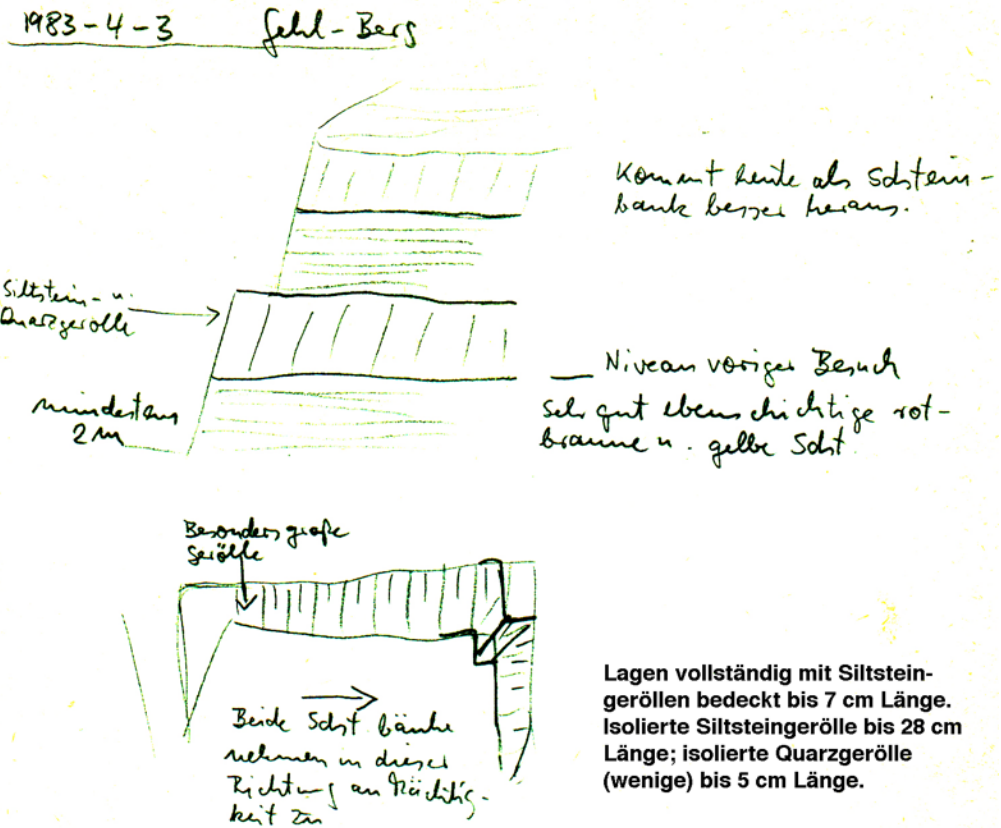 1983-4-3 Gehl-Berg
Kommt heute als Sdstein-
bank besser heraus.
Siltstein- u.
Quarzgerölle
mindestens
2 m
Niveau voriger Besuch
sehr gut ebenschichtige rot-
braune u. gelbe Sdst
Besonders große
Gerölle
Beide Sdst bänke
nehmen in dieser
Richtung an Mächtig-
keit zu
Lagen vollständig mit Siltstein-
geröllen bedeckt bis 7 cm Länge.
Isolierte Siltsteingerölle bis 28 cm
Länge; isolierte Quarzgerölle
(wenige) bis 5 cm Länge.